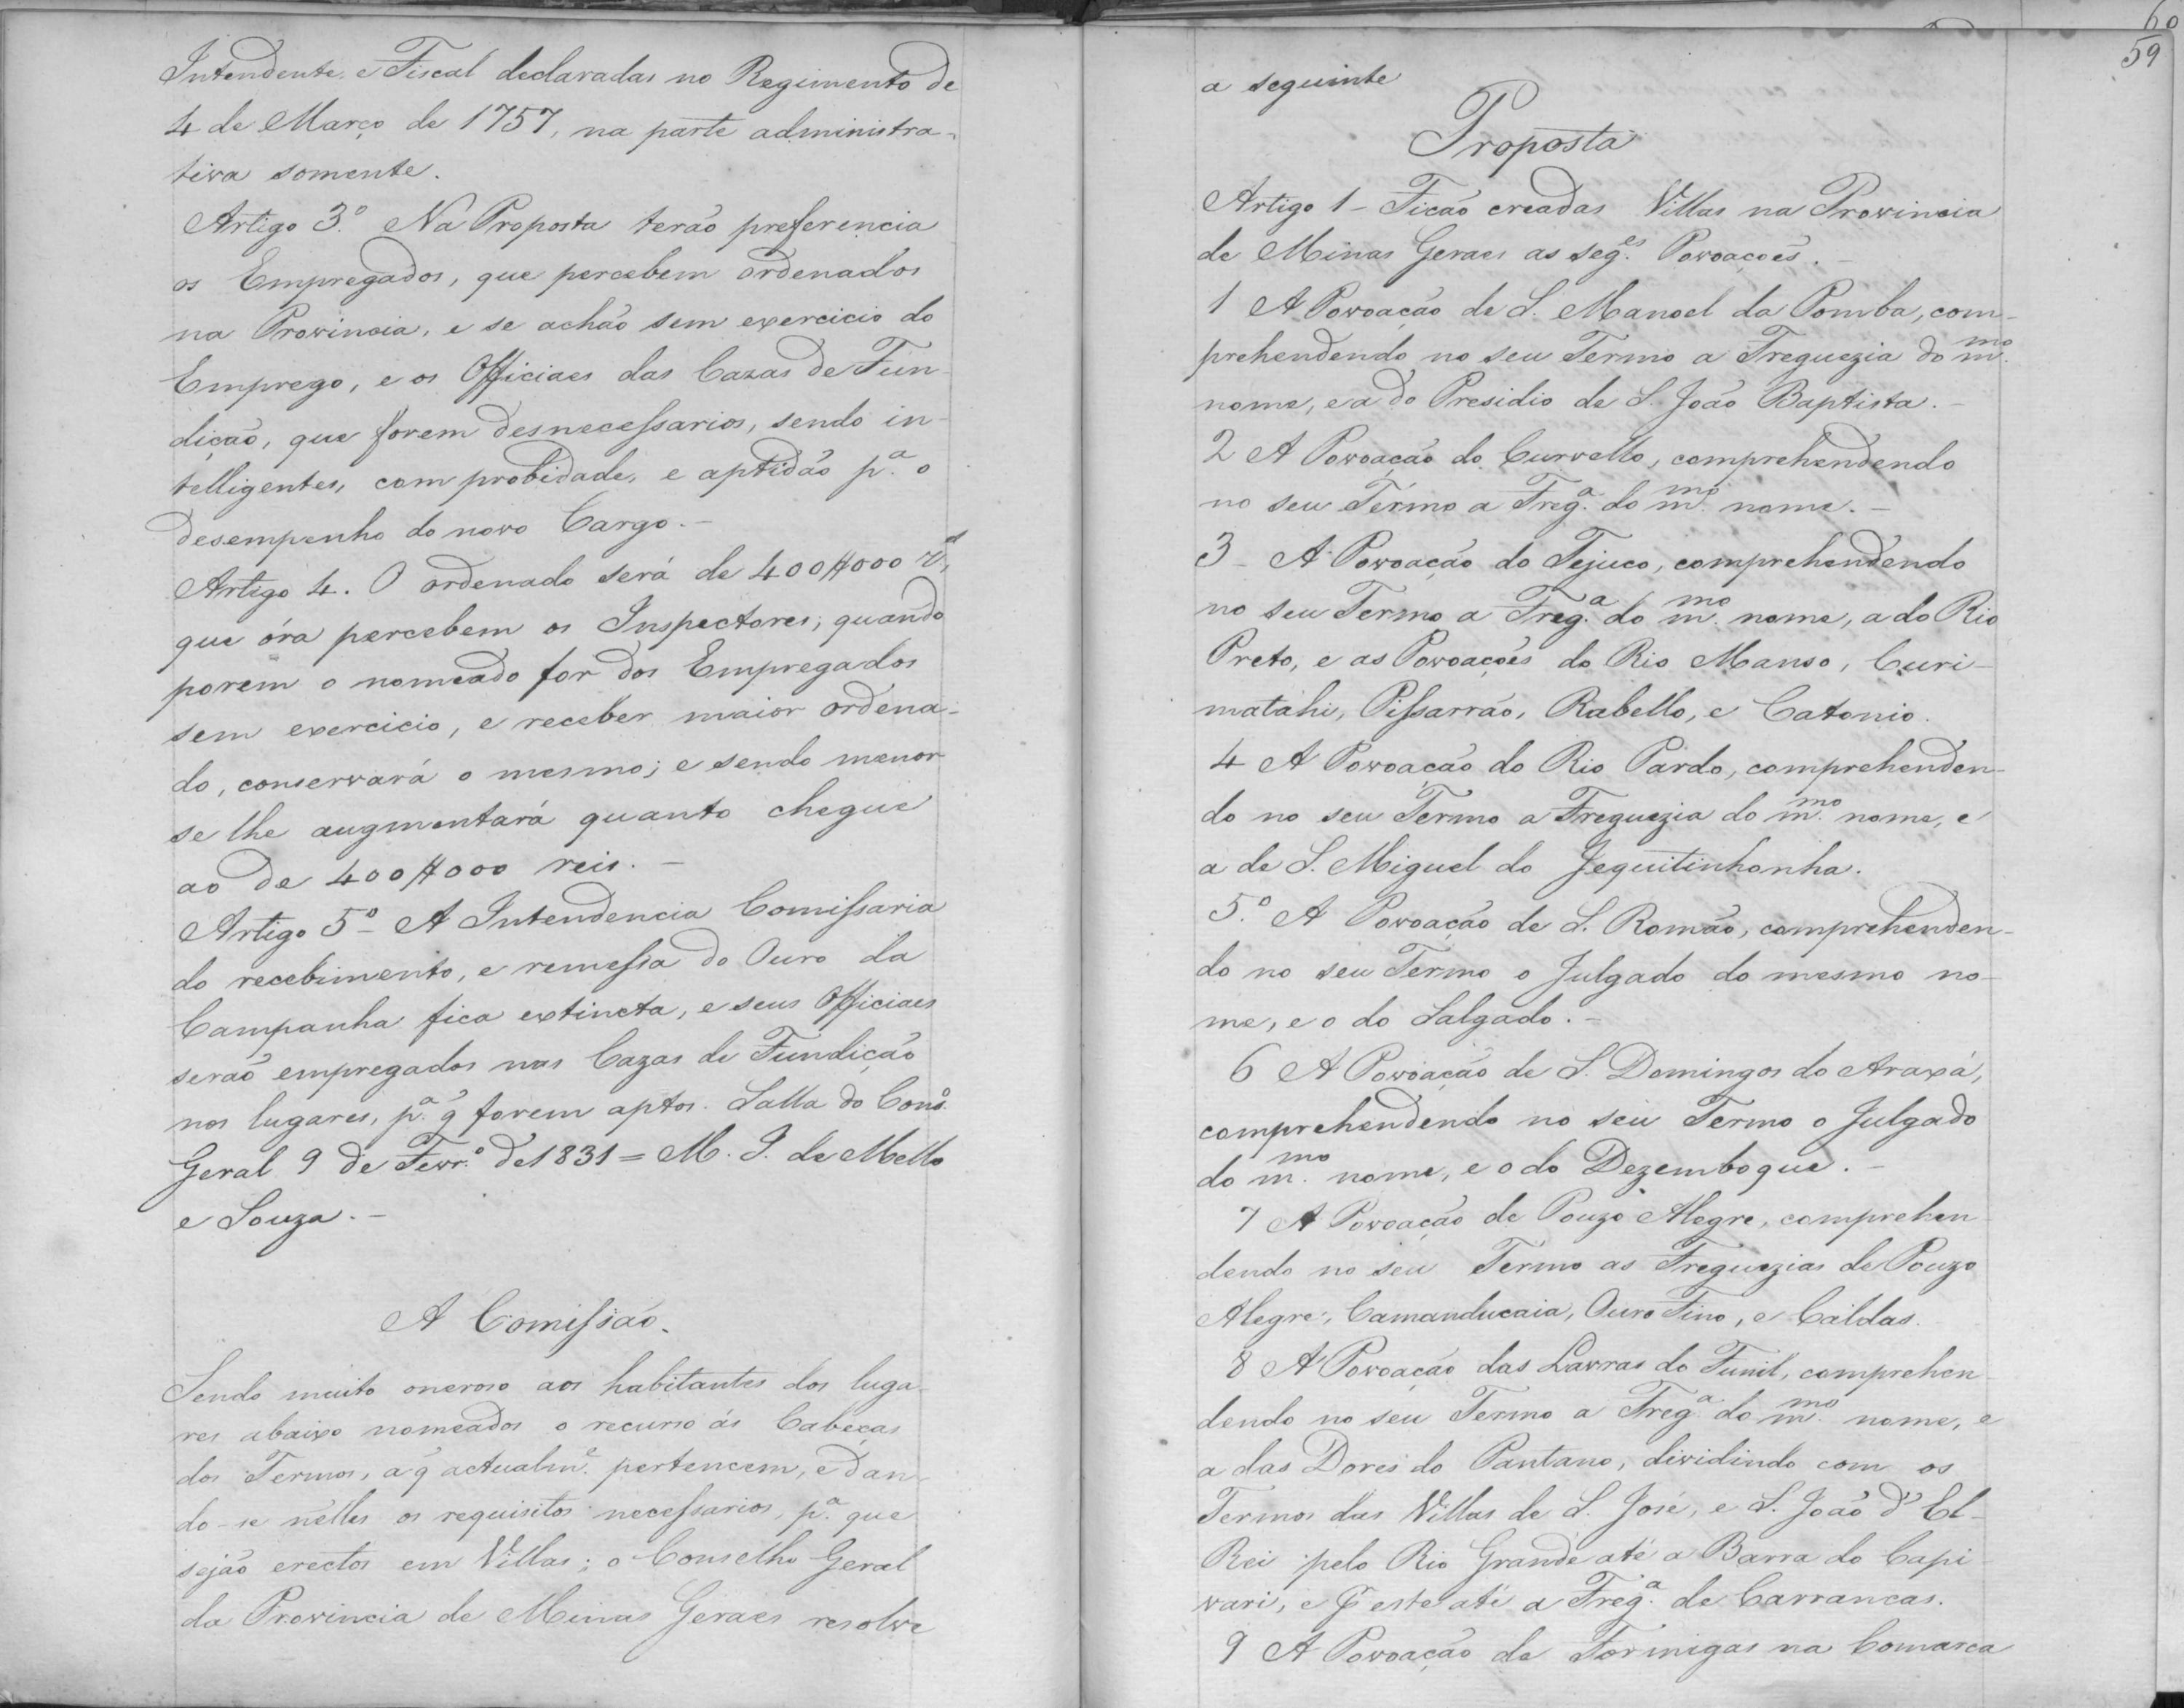 Intendente, e Fiscal declaradas no Regimento de
4 de Março de 1757, na parte administra-
tiva somente.
Artigo 3.º Na Proposta terão preferencia
os Empregados, que percebem ordenados
na Provincia, e se achão sem exercicio do
Emprego, e os Officiaes das Cazas de Fun-
dição, que forem desnecessarios, sendo in-
telligentes, com probidade, e aptidão p.ª o
desempenho do novo Cargo.-
Artigo 4. O ordenado será de 400#000 r.s,
que óra percebem os Inspectores; quando
porem o nomeado for dos Empregados
sem exercicio, e receber maior ordena-
do, conservará o mesmo; e sendo menor
se lhe augmentará quanto chegue
ao de 400#000 reis.-
Artigo 5º- A Intendencia Comissaria
do recebimento, e remessa do Ouro da
Campanha fica extincta, e seus Officiaes
serão empregados nas Cazas de Fundição
nos lugares, p.ª q̃ forem aptos. Salla do Cons.º
Geral 9 de Fevr.º de 1831 = M. I. de Mello
e Souza.-
A Comissão.
Sendo muito oneroso aos habitantes dos luga-
res abaixo nomeados o recurso ás Cabeças
dos Termos, a q̃ actualm.e pertencem, e dan-
do-se nelles os requisitos necessarios, p.ª que
sejão erectos em Villas; o Conselho Geral
da Provincia de Minas Geraes resolve
60
59
a seguinte
Proposta
Artigo 1- Ficão creadas Villas na Provincia
de Minas Geraes as seg.es Povoações.-
1 A Povoação de S. Manoel da Pomba, com-
prehendendo no seu Termo a Freguezia do m.mo
nome, e a do Presidio de S. João Baptista.-
2 A Povoação do Curvello, comprehendendo
no seu Termo a Freg.ª do m.mo nome.-
3- A Povoação do Tejuco, comprehendendo
no seu Termo a Freg.ª do m.mo nome, a do Rio
Preto, e as Povoações do Rio Manso, Curi-
matahi, Pissarrão, Rabello, e Catonio.
4 A Povoação do Rio Pardo, comprehenden-
do no seu Termo a Freguezia do m.mo nome, e
a de S. Miguel do Jequitinhonha.
5.º A Povoação de S. Romão, comprehenden-
do no seu Termo o Julgado do mesmo no-
me, e o do Salgado.-
6 A Povoação de S. Domingos do Araxá,
comprehendendo no seu Termo o Julgado
do m.mo nome, e o do Dezemboque.-
7 A Povoação de Pouzo Alegre, comprehen-
dendo no seu Termo as Freguezias de Pouzo
Alegre, Camanducaia, Ouro Fino, e Caldas.
8 A Povoação das Lavras do Funil, comprehen-
dendo no seu Termo a Freg.ª do m.mo nome, e
a das Dores do Pantano, dividindo com os
Termos das Villas de S. José, e S. João d'El-
Rei pelo Rio Grande até a Barra do Capi-
vari, e p̃ este até a Freg.ª de Carrancas.
9 A Povoação de Formigas na Comarca